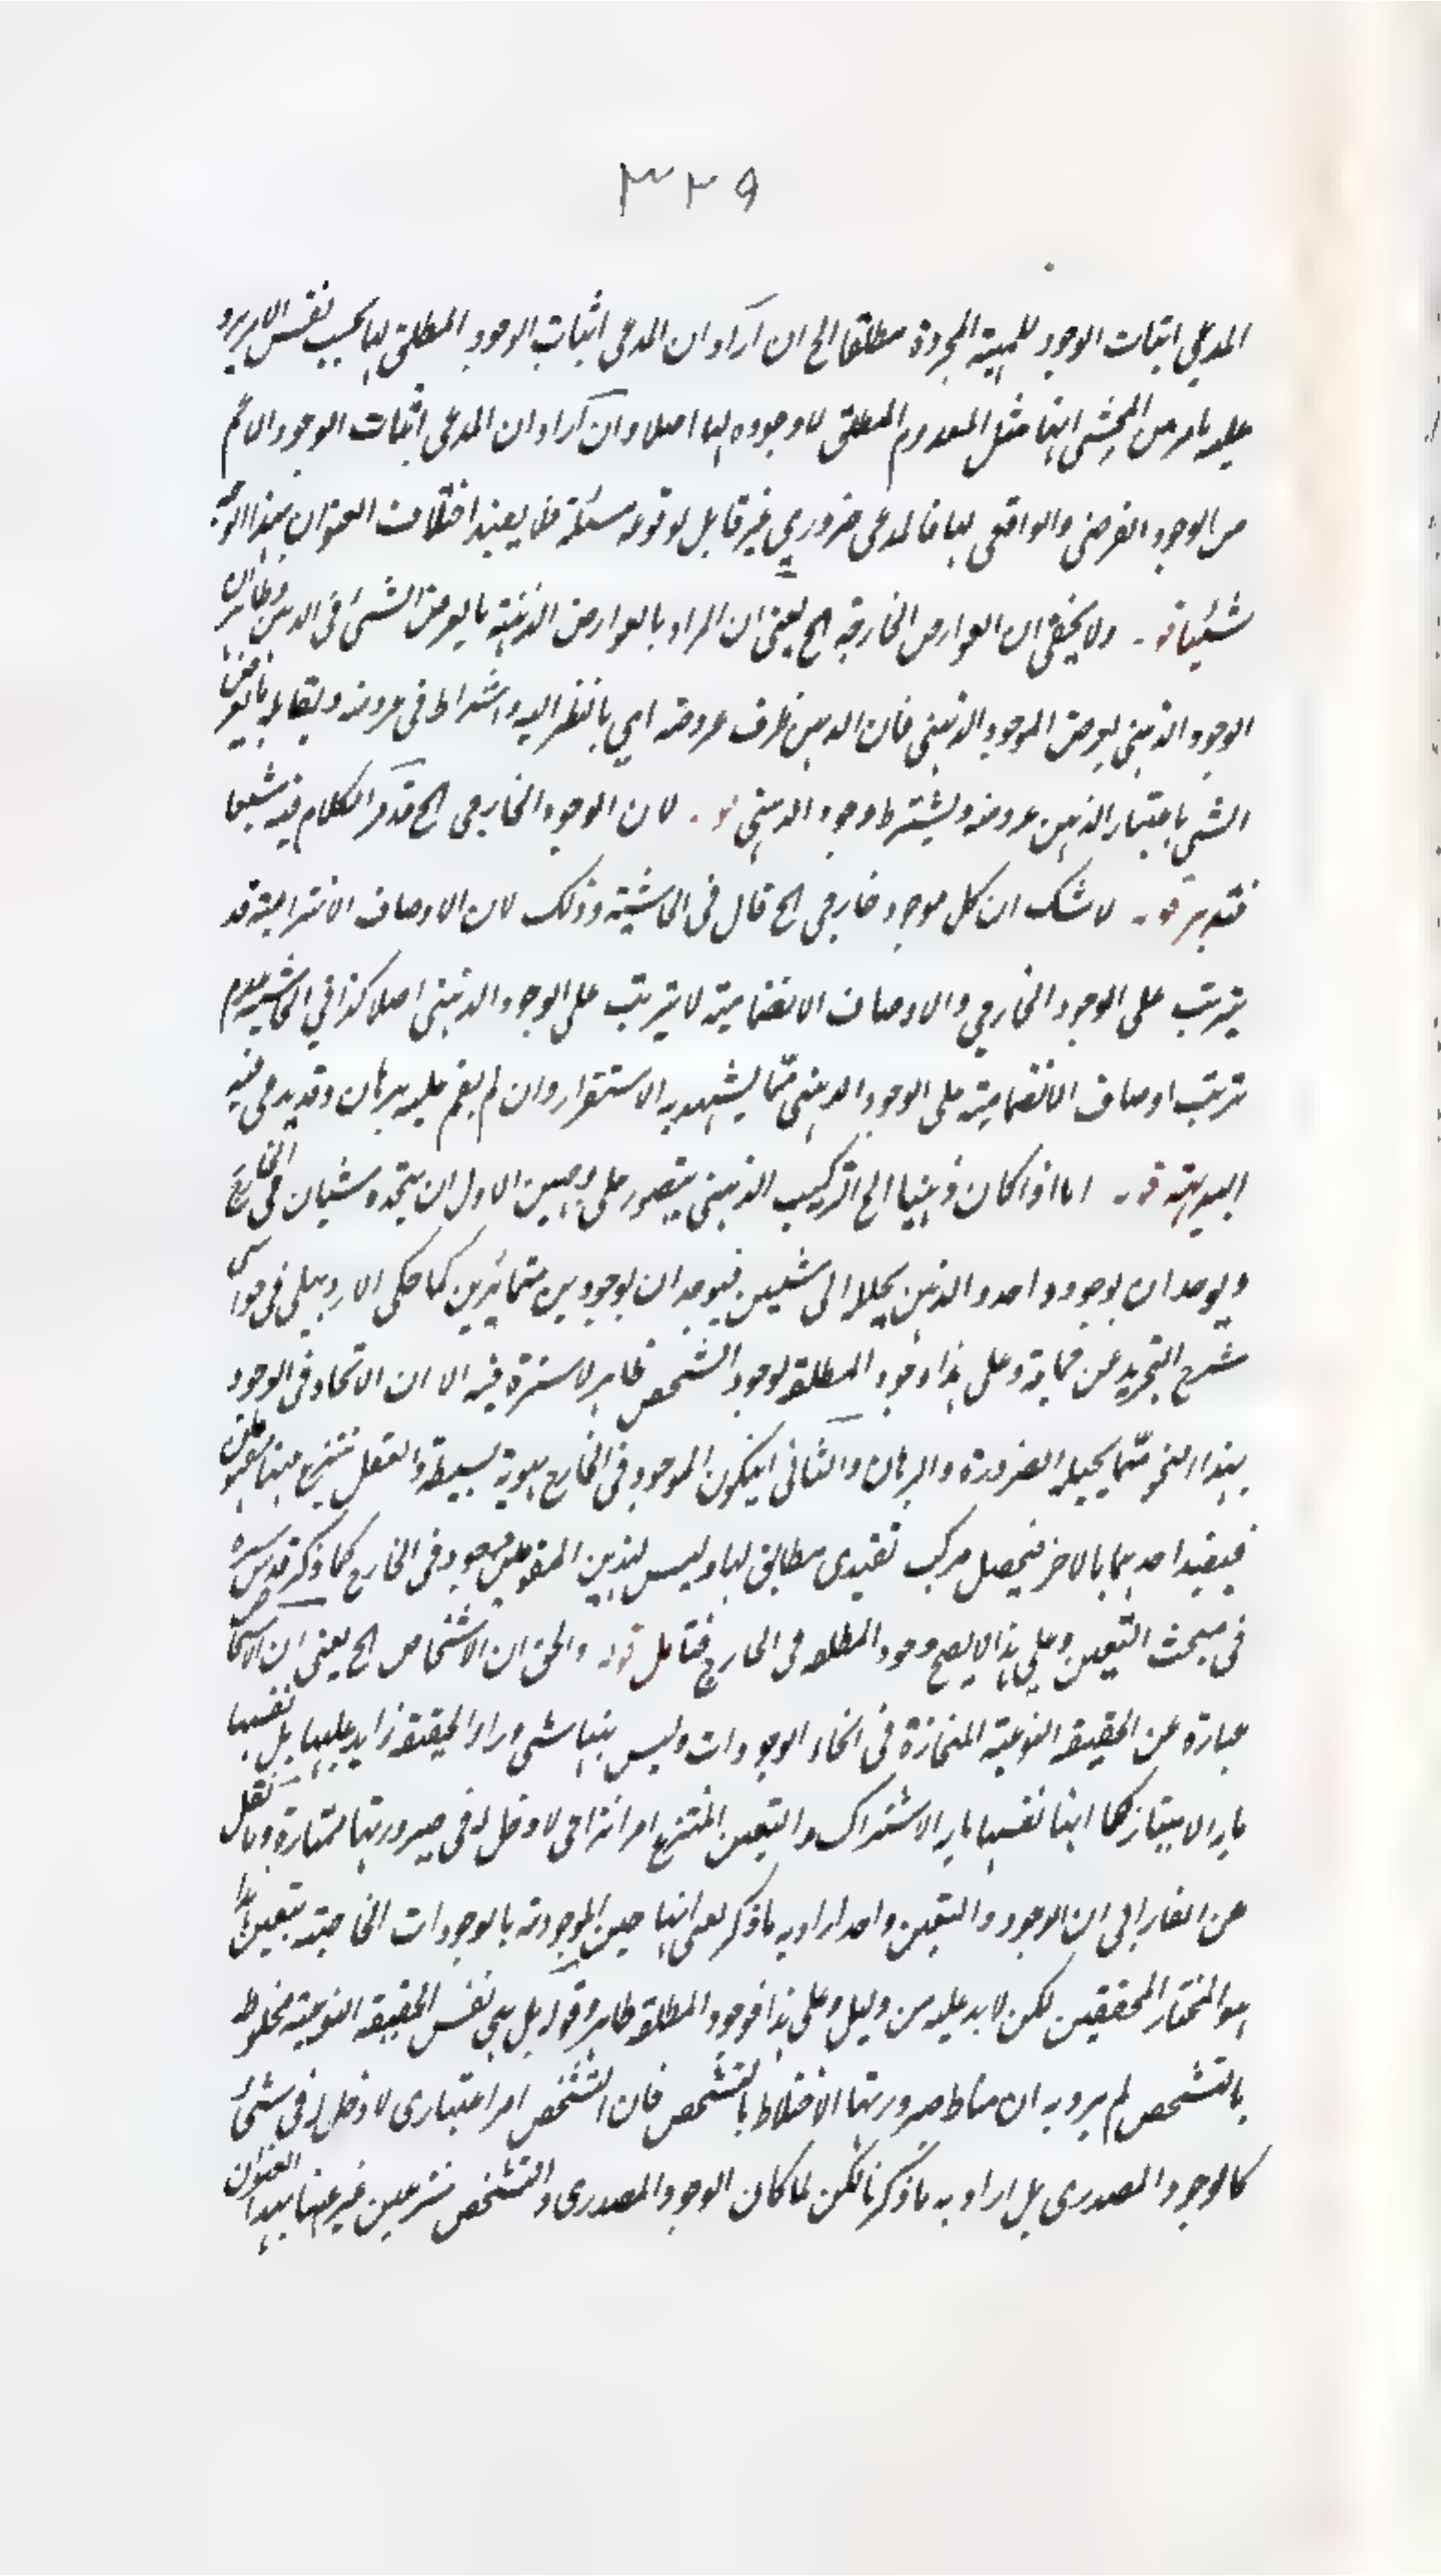 ٣٢٩
المدعي اثبات الوجود للمهية المجردة مطلقا الخ ان اراد ان المدعى اثبات الوجود المطلق لها بحسب نفس الامر يرد
عليه ما مر من المحشي انها مثل المعدوم المطلق لا وجود لها اصلا وان اراد ان المدعى اثبات الوجود الاعم
من الوجود الفرضي والواقعي لها فالمدعى ضروري غير قابل لوقوعه مسئلة فلا يفيد اختلاف العنوان بهذا الوجه
شيئا قوله ولا يخفى ان العوارض الخارجية الخ يعني ان المراد بالعوارض الذهنية ما يعرض الشئ في الذهن وظاهر ان
الوجود الذهني يعرض الموجود الذهني فان الذهن ظرف عروضه اي بالنظر اليه واشتراط في عروضه ويقابله ما يعرض
الشي باعتبار الذهن عروضه ويشترط وجود الذهني قوله لان الوجود الخارجي الخ قد مر الكلام فيه شيعا
فتدبر قوله لا شك ان كل موجود خارجي الخ قال في الحاشية وذلك لان الاوصاف الانتزاعية قد
يترتب على الوجود الخارجي والاوصاف الانضمامية لا يترتب على الوجود الذهني اصلا كذا في الحاشية عدم
ترتب اوصاف الانضمامية على الوجود الذهني مما يشهد به الاستقرار وان لم يقم عليه برهان وقد يدعى فيه
البديهة قوله اما اذا كان ذهنيا الخ التركيب الذهني يتصور على وجهين الاول ان يتحد شيئان في الخارج
ويوجدان بوجود واحد والذهن يحللا الى شيئين فيوجدان بوجودين متمايزين كما حكى الاردبيلي في حواشي
شرح التجريد عن جماعة وعلى هذا وجود المطلقة لوجود الشخص ظاهر لا سترة فيه الا ان الاتحاد في الوجود
بهذا النحو مما يحيله الضرورة والبرهان والثاني ان يكون الموجود في الخارج هوية بسيطة والعقل ينتزع منها مفهومان
فيقيد احدهما بالاخر فيحصل مركب تقيدي مطابق لها وليس لهذين المفهومين وجود في الخارج كما ذكر قدس سره
في مبحث التعين وعلى هذا لا يصح وجود المطلقة في الخارج فتامل قوله والحق ان الاشخاص الخ يعني ان الاشخاص
عبارة عن الحقيقة النوعية المنحازة في انحاء الوجودات وليس فيها شئ وراء الحقيقة زايد عليها بل نفسها
ما به الامتياز كما انها نفسها ما به الاشتراك والتعين المنتزع امر انتزاعي لا دخل له في صيرورتها ممتازة وما نقل
عن الفارابي ان الوجود والتعين واحد اراد به ما ذكر يعني انها حين الموجودية بالوجودات الخاصة متعين هذا
هو المختار المحققين لكن لا بد عليه من دليل وعلى هذا فوجود المطلقة ظاهر وقوله بل هي نفس الحقيقة النوعية مخلوطة
بالتشخص لم يرد به ان مناط صيرورتها الاختلاط بالتشخص فان التشخص امر اعتباري لا دخل له في شئ
كالوجود المصدري بل اراد به ما ذكرنا لكن لما كان الوجود المصدري والتشخص منتزعين غير عنها بهذا العنوان